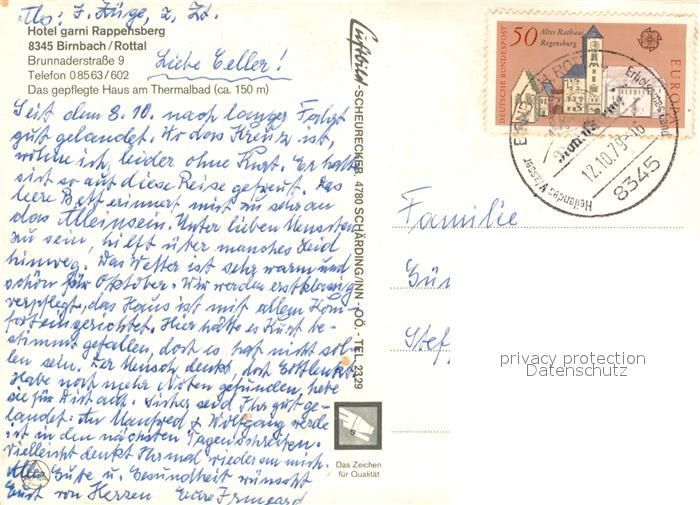 Abs: I. Züge, z. Zt.
Hotel garni Rappensberg
8345 Birnbach/Rottal
Brunnaderstraße 9
Telefon 0 85 63 / 602
Das gepflegte Haus am Thermalbad (ca. 150 m)
Liebe Celler!
Seit dem 8.10. nach langer Fahrt
gut gelandet. Wo das Kreuz ist,
wohne ich, leider ohne Kurt. Er hatte
sich so auf diese Reise gefreut. Das
leere Bett erinnert mich zu sehr an
das Alleinsein. Unter lieben Menschen
zu sein, hilft über manches Leid
hinweg. Das Wetter ist sehr warm und
schön für Oktober. Wir werden erstklassig
verpflegt, das Haus ist mit allem Kom-
fort eingerichtet. Hier hätte es Kurt be-
stimmt gefallen, doch es hat nicht sol-
len sein. Der Mensch denkt, doch Gott lenkt.
Habe noch mehr Noten gefunden, hebe
sie für Dich auf. Sicher seid Ihr gut ge-
landet. An Manfred & Wolfgang werde
ich in den nächsten Tagen schreiben.
Vielleicht denkt Ihr mal wieder an mich.
Alles Gute u. Gesundheit wünscht
Euch von Herzen Eure Irmgard
Luftbild-SCHEURECKER, 4780 SCHÄRDING/INN - OÖ. - TEL. 2329
Das Zeichen
für Qualität
50 Altes Rathaus
Regensburg
DEUTSCHE BUNDESPOST
EUROPA
Heilendes Wasser
Erholsames Land
12.10.79-16
8345
Familie
Gün
Stef
privacy protection
Datenschutz